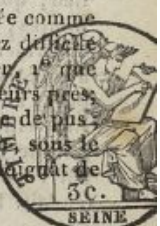 ée comme
ez difficile
que
eurs près,
e de plus
, sous le
aignât de
3 C.
SEINE